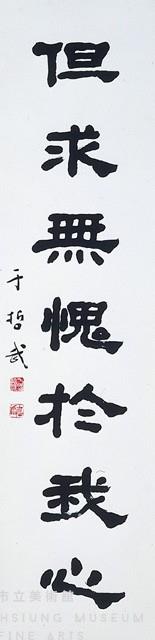 但求無愧於我心
于哲武
市立美術館
HSIUNG MUSEUM
FINE ARTS